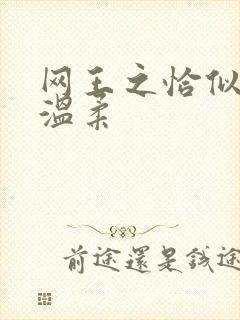 网王之恰似
温柔
前途還是錢途